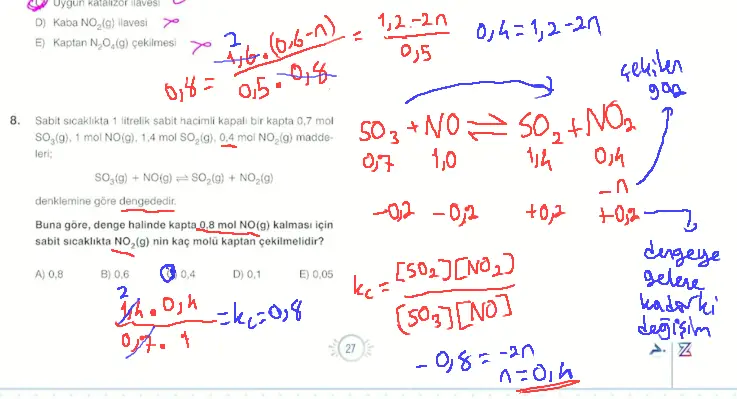 Uygun katalizör ilavesi
D) Kaba NO₂(g) ilavesi
E) Kaptan N₂O₄(g) çekilmesi
0,8 = 1,6 . (0,6-n) / 0,5 . 0,8 = 1,2 - 2n / 0,5
2
0,4 = 1,2 - 2n
çekilen
gaz
8. Sabit sıcaklıkta 1 litrelik sabit hacimli kapalı bir kapta 0,7 mol
SO₃(g), 1 mol NO(g), 1,4 mol SO₂(g), 0,4 mol NO₂(g) madde-
leri;
SO₃(g) + NO(g) ⇌ SO₂(g) + NO₂(g)
denklemine göre dengededir.
Buna göre, denge halinde kapta 0,8 mol NO(g) kalması için
sabit sıcaklıkta NO₂(g) nin kaç molü kaptan çekilmelidir?
A) 0,8 B) 0,6 C) 0,4 D) 0,1 E) 0,05
SO₃ + NO ⇌ SO₂ + NO₂
0,7 1,0 1,4 0,4
-n
-0,2 -0,2 +0,2 +0,2
dengeye
gelene
kadarki
değişim
kc = [SO₂][NO₂] / [SO₃][NO]
2
1,4 . 0,4 / 0,7 . 1 = kc = 0,8
-0,8 = -2n
n = 0,4
27